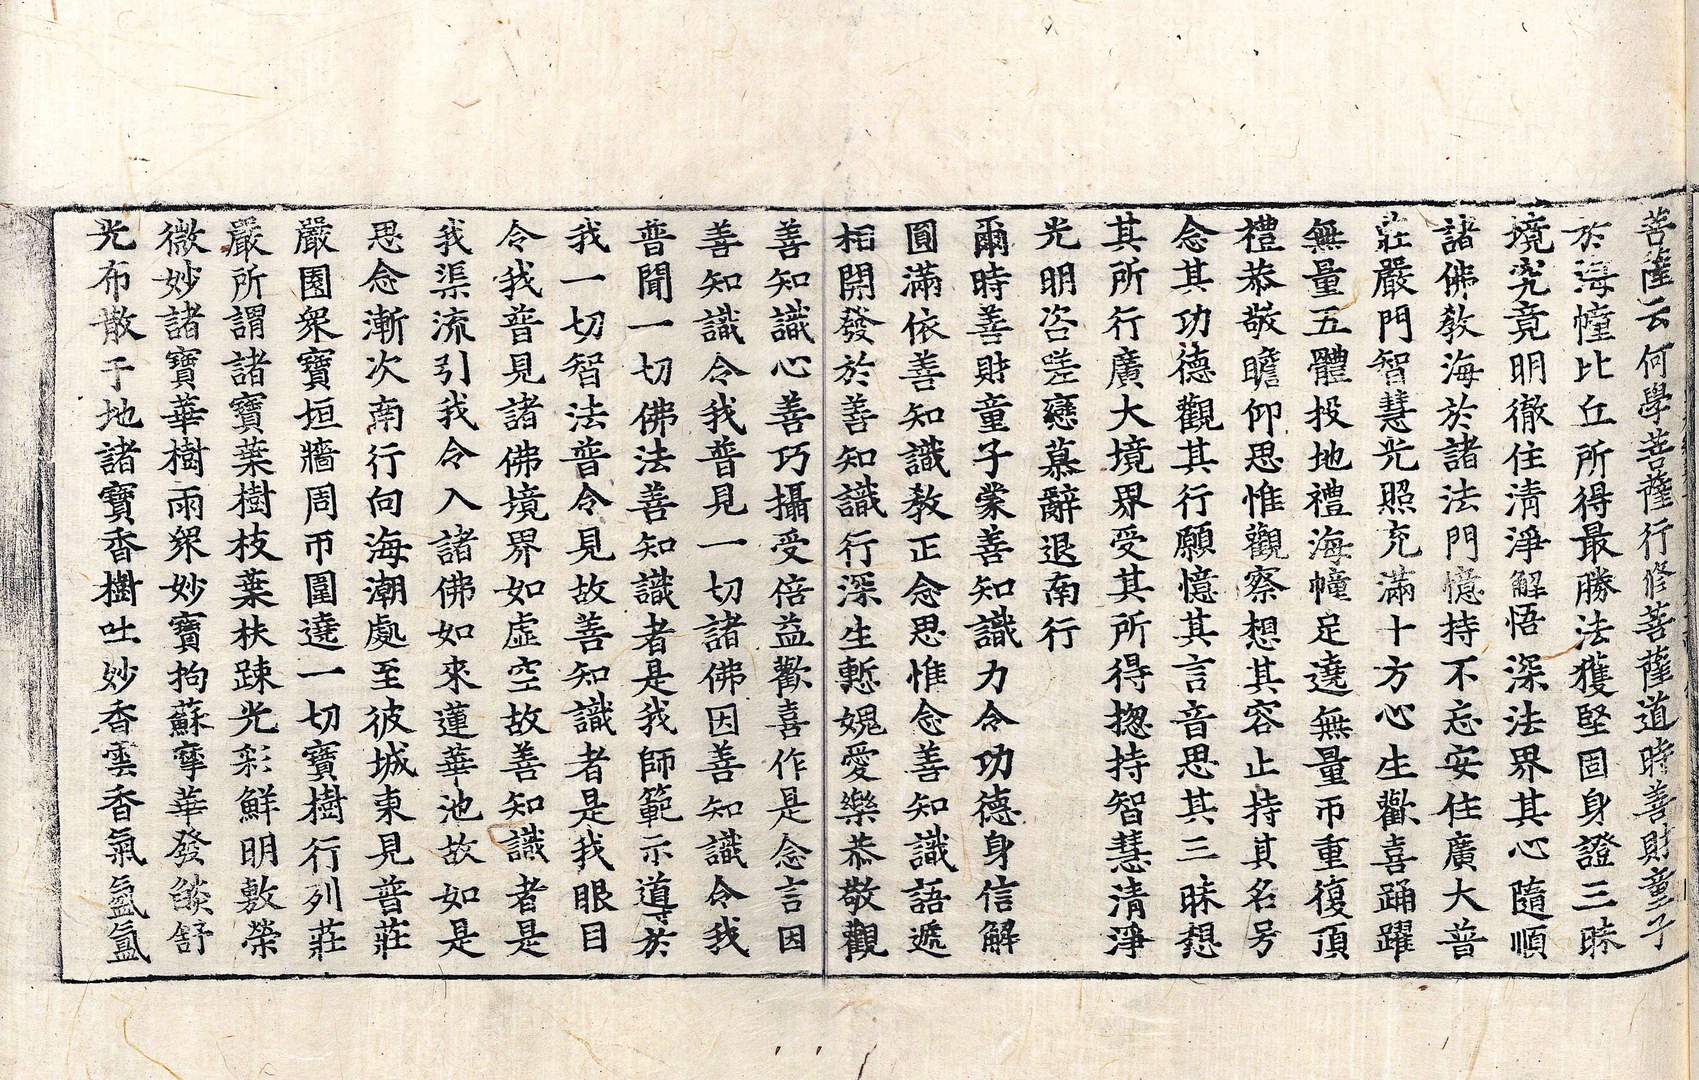 菩薩云何學菩薩行修菩薩道時善財童子
於海幢比丘所得最勝法獲堅固身證三昧
境究竟明徹住清淨解悟深法界其心隨順
諸佛教海於諸法門憶持不忘安住廣大普
莊嚴門智慧光照充滿十方心生歡喜踊躍
無量五體投地禮海幢足遶無量帀重復頂
禮恭敬瞻仰思惟觀察想其容止持其名号
念其功德觀其行願憶其言音思其三昧想
其所行廣大境界受其所得揔持智慧清淨
光明咨嗟戀慕辭退南行
爾時善財童子蒙善知識力令功德身信解
圓滿依善知識教正念思惟念善知識語遞
相開發於善知識行深生慙媿愛樂恭敬觀
善知識心善巧攝受倍益歡喜作是念言因
善知識令我普見一切諸佛因善知識令我
普聞一切佛法善知識者是我師範示道寸於
我一切智法普令見故善知識者是我眼目
令我普見諸佛境界如虛空故善知識者是
我渠流引我令入諸佛如來蓮華池故如是
思念漸次南行向海潮處至彼城東見普莊
嚴園衆寶垣牆周帀圍遶一切寶樹行列莊
嚴所謂諸寶葉樹枝葉扶踈光彩鮮明敷榮
微妙諸寶華樹雨衆妙寶拘蘇㝈華發燄舒
光布散于地諸寶香樹吐妙香雲香氣氤氳